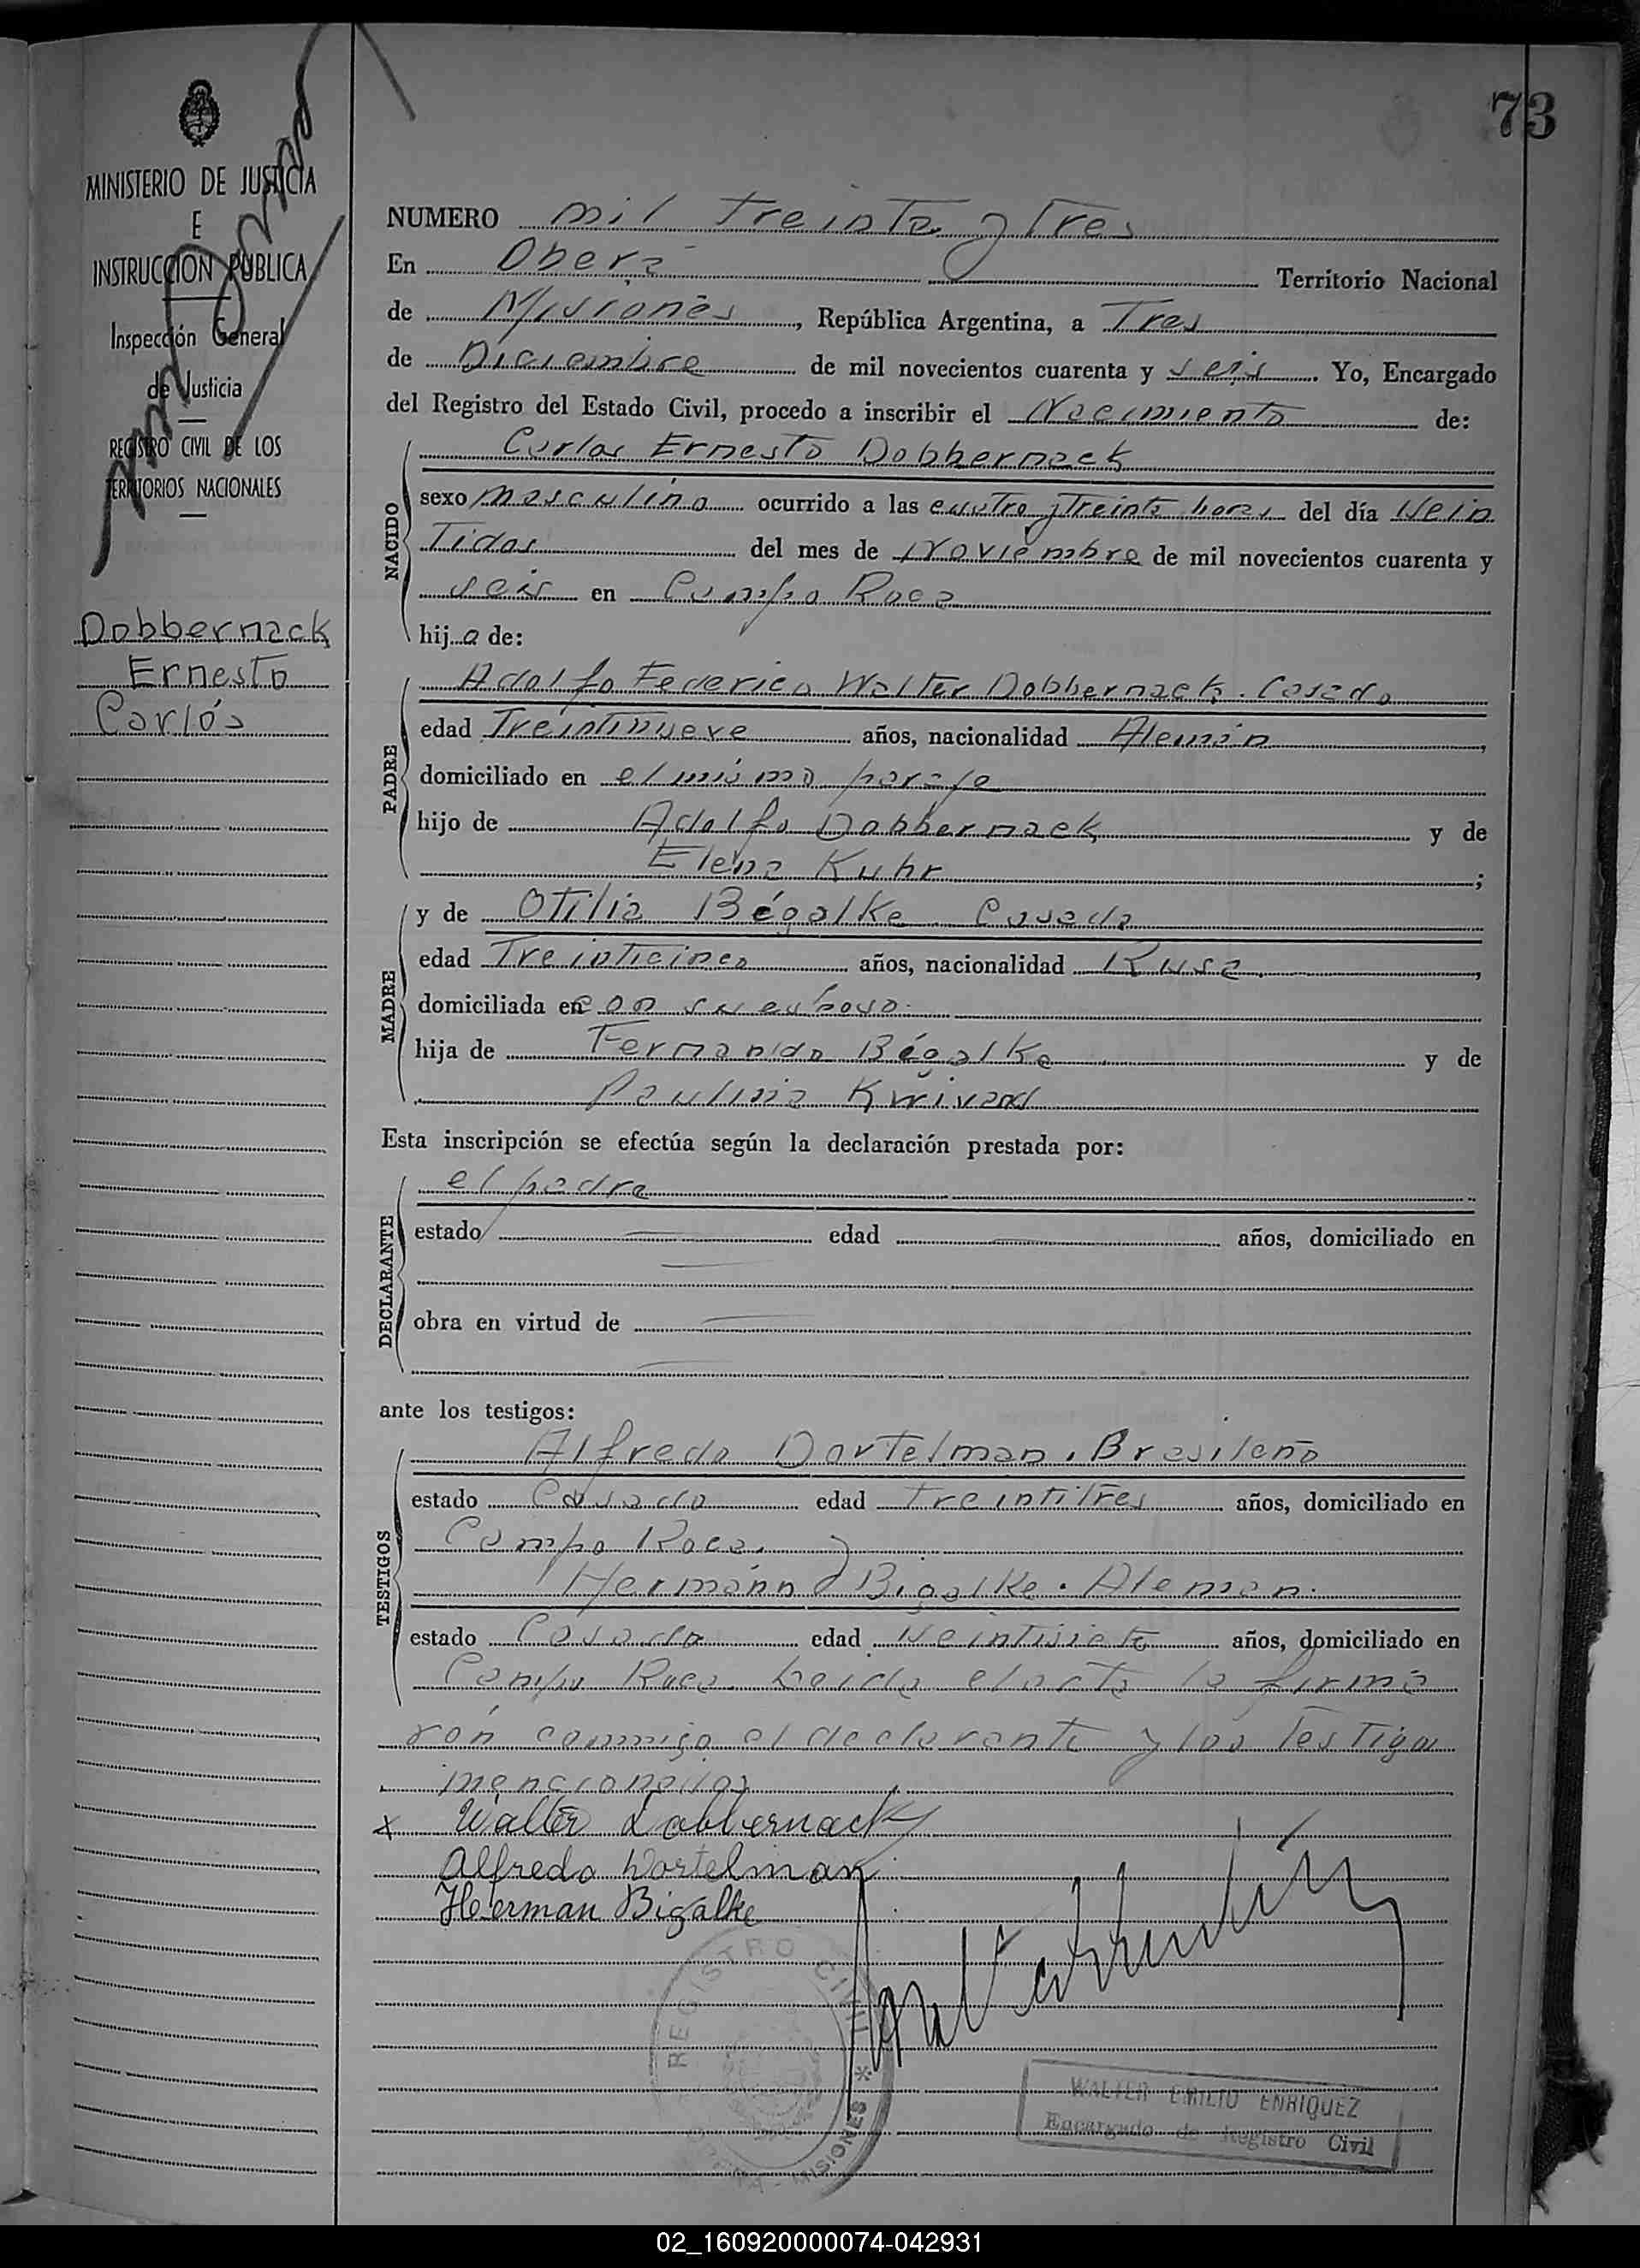 73
MINISTERIO DE JUSTICIA
E
INSTRUCCION PUBLICA
Inspección General
de Justicia
REGISTRO CIVIL DE LOS
TERRITORIOS NACIONALES
Dobbernack
Ernesto
Carlos
NUMERO mil treinta y Tres
En Oberá Territorio Nacional
de Misiones, República Argentina, a Tres
de Diciembre de mil novecientos cuarenta y seis. Yo, Encargado
del Registro del Estado Civil, procedo a inscribir el Nacimiento de:
NACIDO
Carlos Ernesto Dobbernack
sexo masculino ocurrido a las cuatro y Treinta horas del día Vein
Tidos del mes de Noviembre de mil novecientos cuarenta y
seis en Campo Roca
hijo de:
PADRE
Adolfo Federico Walter Dobbernack. Casado
edad Treintinueve años, nacionalidad Alemán,
domiciliado en el mismo paraje
hijo de Adolfo Dobbernack y de
Elena Kuhr;
MADRE
y de Otilia Bégalke. Casada
edad Treinticinco años, nacionalidad Rusa.,
domiciliada en con su esposo.
hija de Fernando Bégalke y de
Paulina
Esta inscripción se efectúa según la declaración prestada por:
DECLARANTE
el padre
estado edad años, domiciliado en
obra en virtud de
ante los testigos:
TESTIGOS
Alfredo Dortelman. Brasileño
estado Casado edad Treintitres años, domiciliado en
Campo Roca. y
Hermann Bigalke. Aleman.
estado Casado edad Veintisiete años, domiciliado en
Campo Roca. Leida el acta la firma
ron conmigo el declarante y los Testigos
mencionados
x Walter Dobbernack
Alfredo Dortelman
Herman Bigalke
REGISTRO CIVIL
MISIONES
WALTER EMILIO ENRIQUEZ
Encargado de Registro Civil
02_160920000074-042931